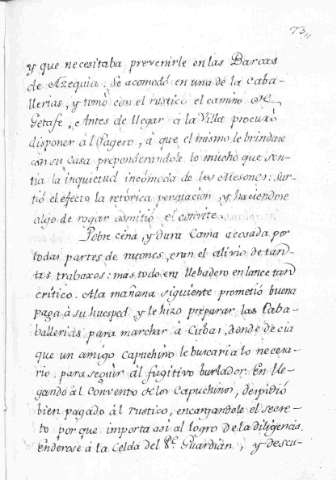 73
y que necesitaba prevenirle en las Barcas
de Azequia: Se acomodó en una de la Caba-
llerias, y tomó con el rustico el camino de
Getafe, Antes de llegar a la Villa procuró
disponer al Pagero, à que el mismo le brindase
con su Casa preponderandole lo mucho que sen-
tia la inquietud incòmoda de los Mesones: Sur-
tió el efecto la retórica persuacion y haciendose
algo de rogar admitiò el convite.
Pobre cena, y dura Cama acosada por
todas partes de ratones, eran el alivio de tan-
tas trabaxos: mas todo era llebadero en lance tan
critico. A la mañana siguiente prometió buena
paga à su huesped y le hizo preparar las Caba-
ballerias para marchar à Cubas, donde decia
que un amigo Capuchino le buscaria lo necesa-
rio para seguir al fugitivo burlador. En lle-
gando al Convento de los Capuchinos, despidió
bien pagado al rustico, encargandole el secre-
to por que importa asi al logro de la diligencia
enderose à la Celda del Pe. Guardian, y descu-